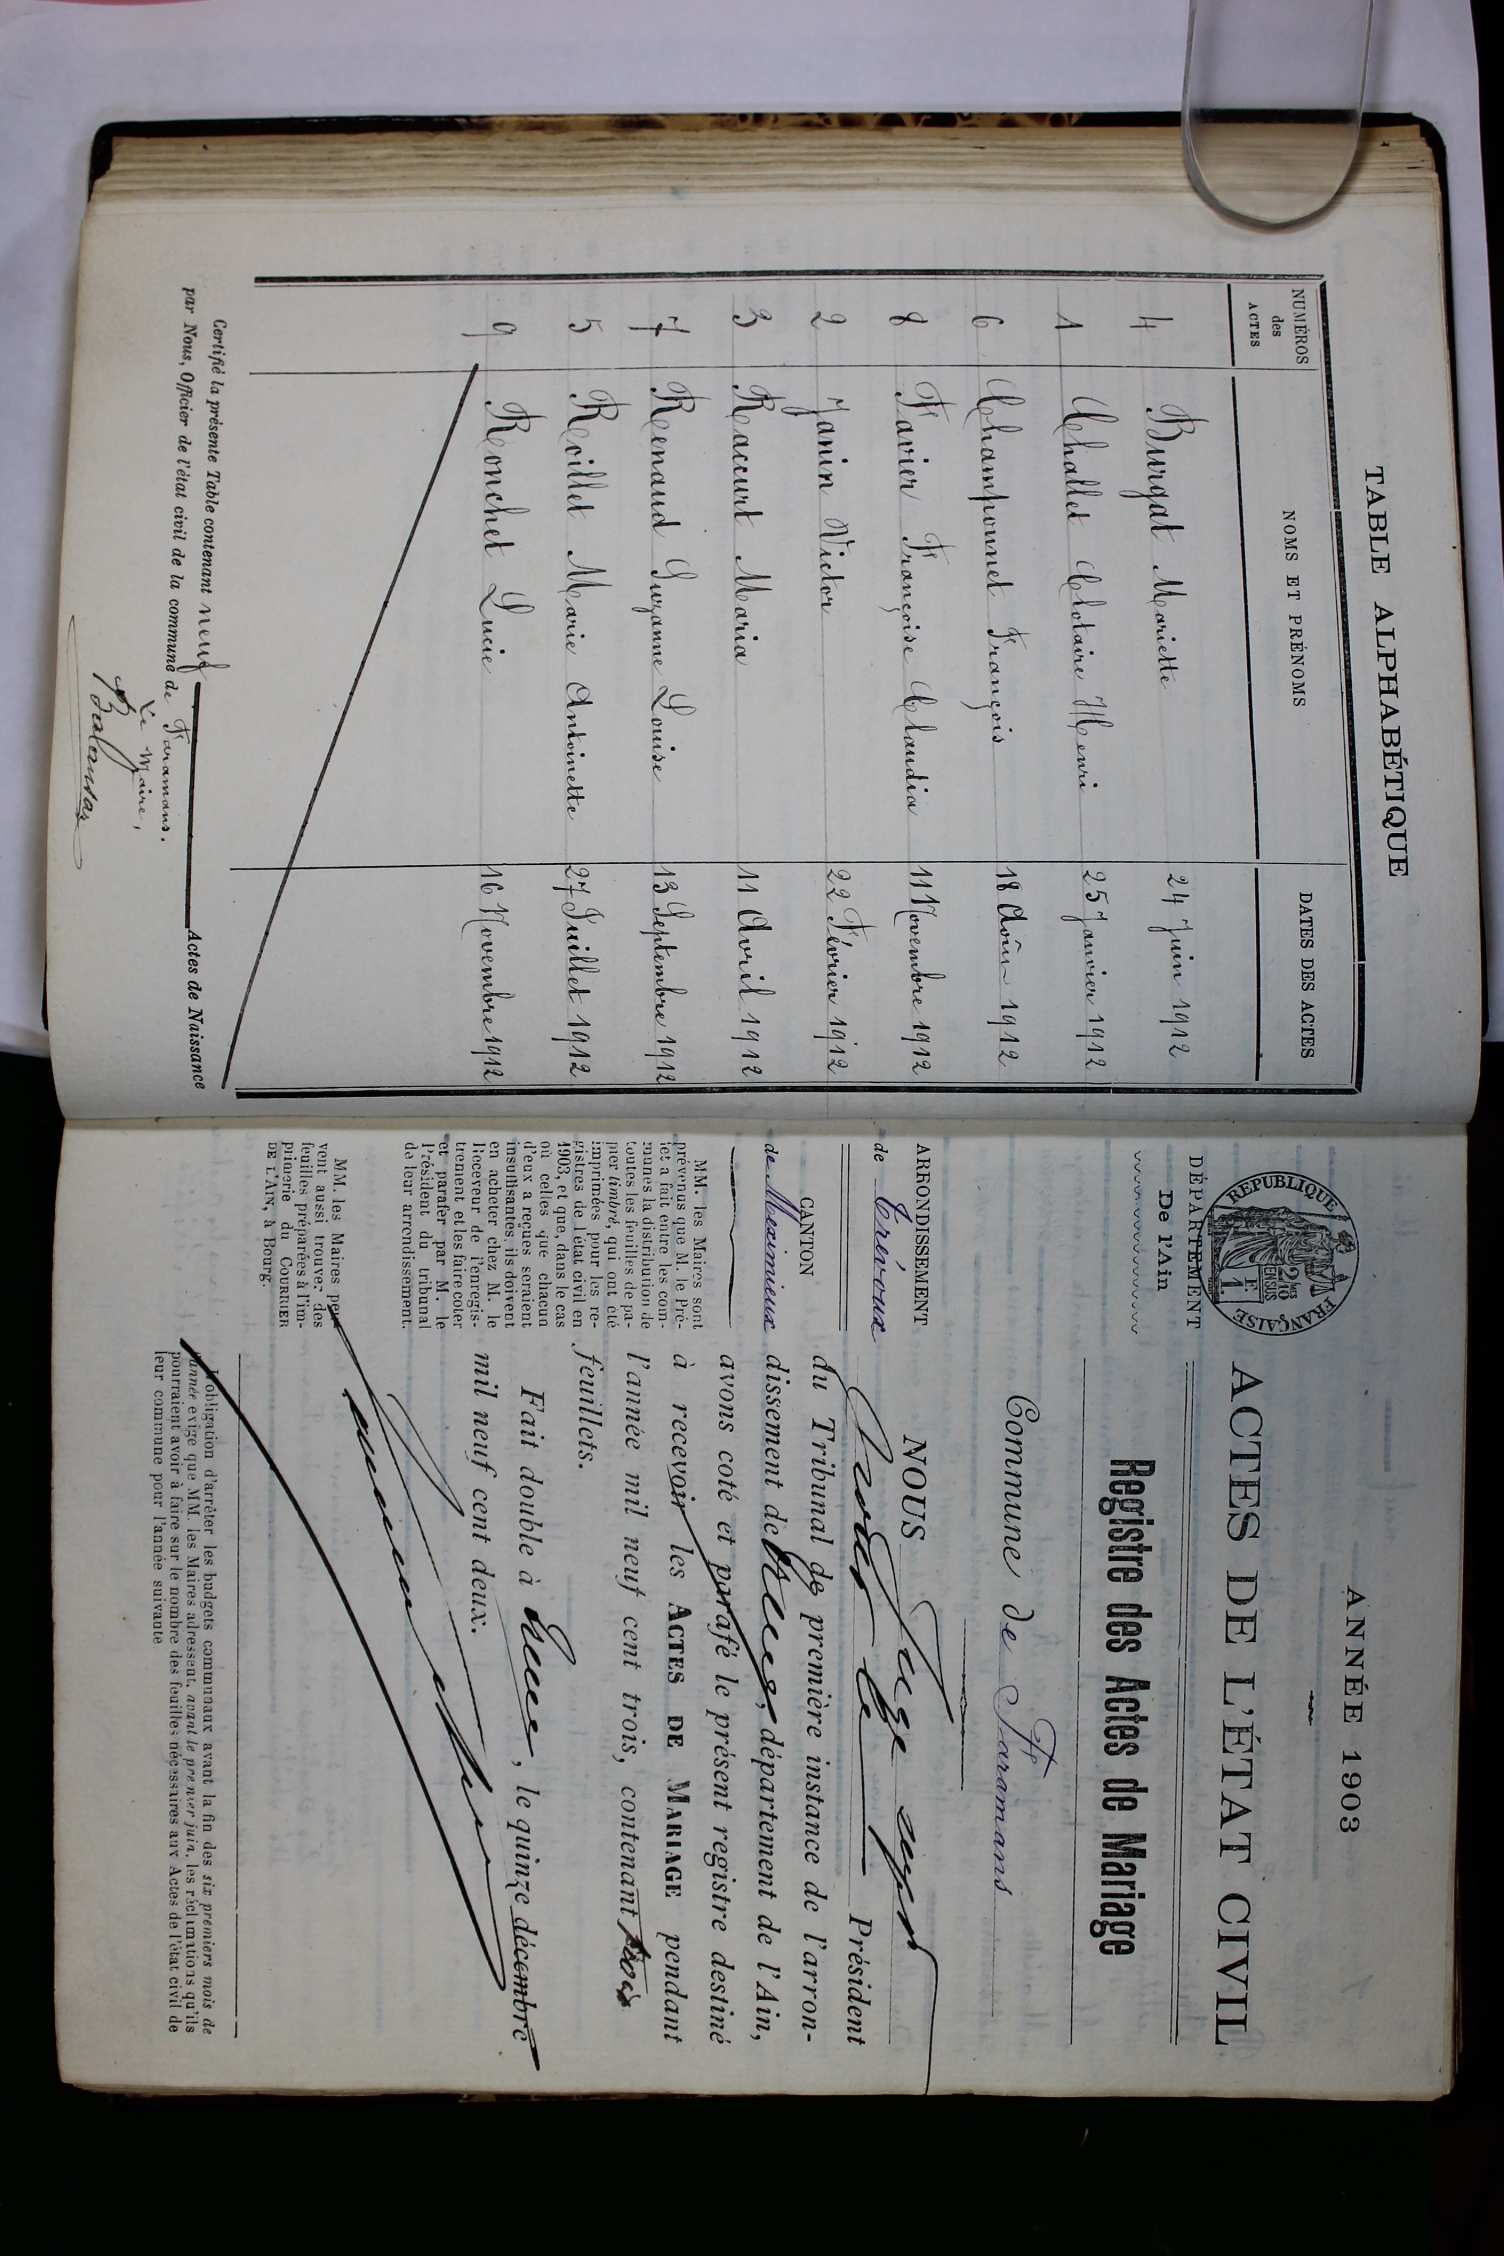 TABLE ALPHABÉTIQUE
NUMÉROS des ACTES NOMS ET PRÉNOMS DATES DES ACTES
4 Burgat Mariette 24 Juin 1912
1 Challet Clotaire Henri 25 Janvier 1912
6 Champonnet François 18 Août 1912
8 Favier Françoise Claudia 11 Novembre 1912
2 Janin Victor 22 Février 1912
3 Raccurt Maria 11 Avril 1912
7 Renaud Suzanne Louise 13 Septembre 1912
5 Roillet Marie Antoinette 27 Juillet 1912
9 Ronchet Lucie 16 Novembre 1912
Certifié la présente Table contenant neuf Actes de Naissance
par Nous, Officier de l'état civil de la commune de Faramans.
Le Maire,
ANNÉE 1903
RÉPUBLIQUE FRANÇAISE
2/10mes EN SUS
1 F.
ACTES DE L'ÉTAT CIVIL
DÉPARTEMENT
De l'Ain
Registre des Actes de Mariage
Commune de Faramans
ARRONDISSEMENT
de Trévoux
CANTON
de Meximieux
MM. les Maires sont
prévenus que M. le Pré-
fet a fait entre les com-
munes la distribution de
toutes les feuilles de pa-
pier timbré, qui ont été
imprimées pour les re-
gistres de l'état civil en
1903, et que, dans le cas
où celles que chacun
d'eux a reçues seraient
insuffisantes, ils doivent
en acheter chez M. le
Receveur de l'enregis-
trement et les faire coter
et parafer par M. le
Président du tribunal
de leur arrondissement.
MM. les Maires peu-
vent aussi trouver des
feuilles préparées à l'im-
primerie du COURRIER
DE L'AIN, à Bourg.
NOUS Juge
le Président
du Tribunal de première instance de l'arron-
dissement de Trévoux, département de l'Ain,
avons coté et parafé le présent registre destiné
à recevoir les ACTES DE MARIAGE pendant
l'année mil neuf cent trois, contenant trois
feuillets.
Fait double à Trévoux, le quinze décembre
mil neuf cent deux.
L'obligation d'arrêter les budgets communaux avant la fin des six premiers mois de
l'année exige que MM. les Maires adressent, avant le premier juin, les réclamations qu'ils
pourraient avoir à faire sur le nombre des feuilles nécessaires aux Actes de l'état civil de
leur commune pour l'année suivante